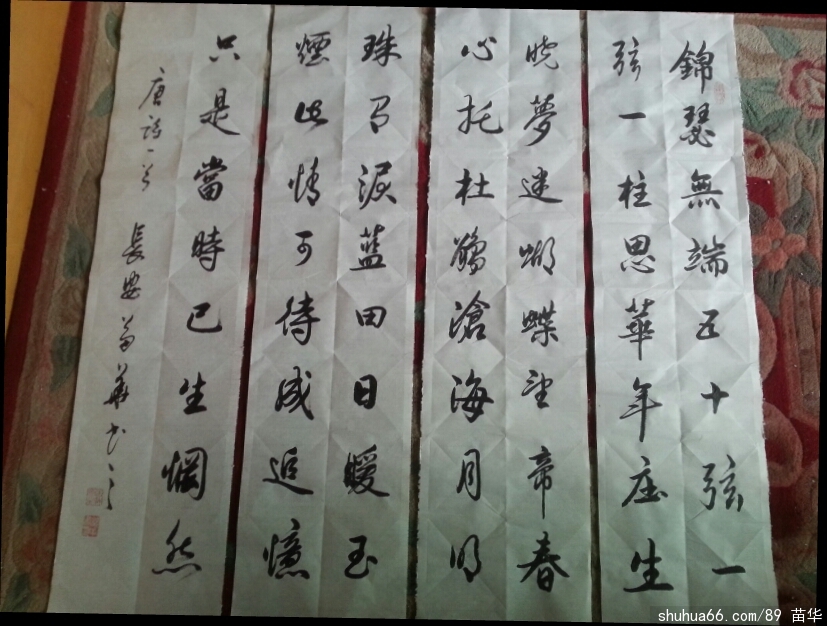 錦瑟無端五十弦一
弦一柱思華年庄生
晓夢迷蝴蝶望帝春
心托杜鵑滄海月明
珠有淚藍田日暖玉
煙此情可待成追憶
只是當時已生惘然
唐詩一首 長安苗華书之
shuhua66.com/89 苗华